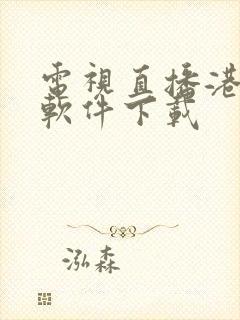 電視直播港
軟件下載
泓森